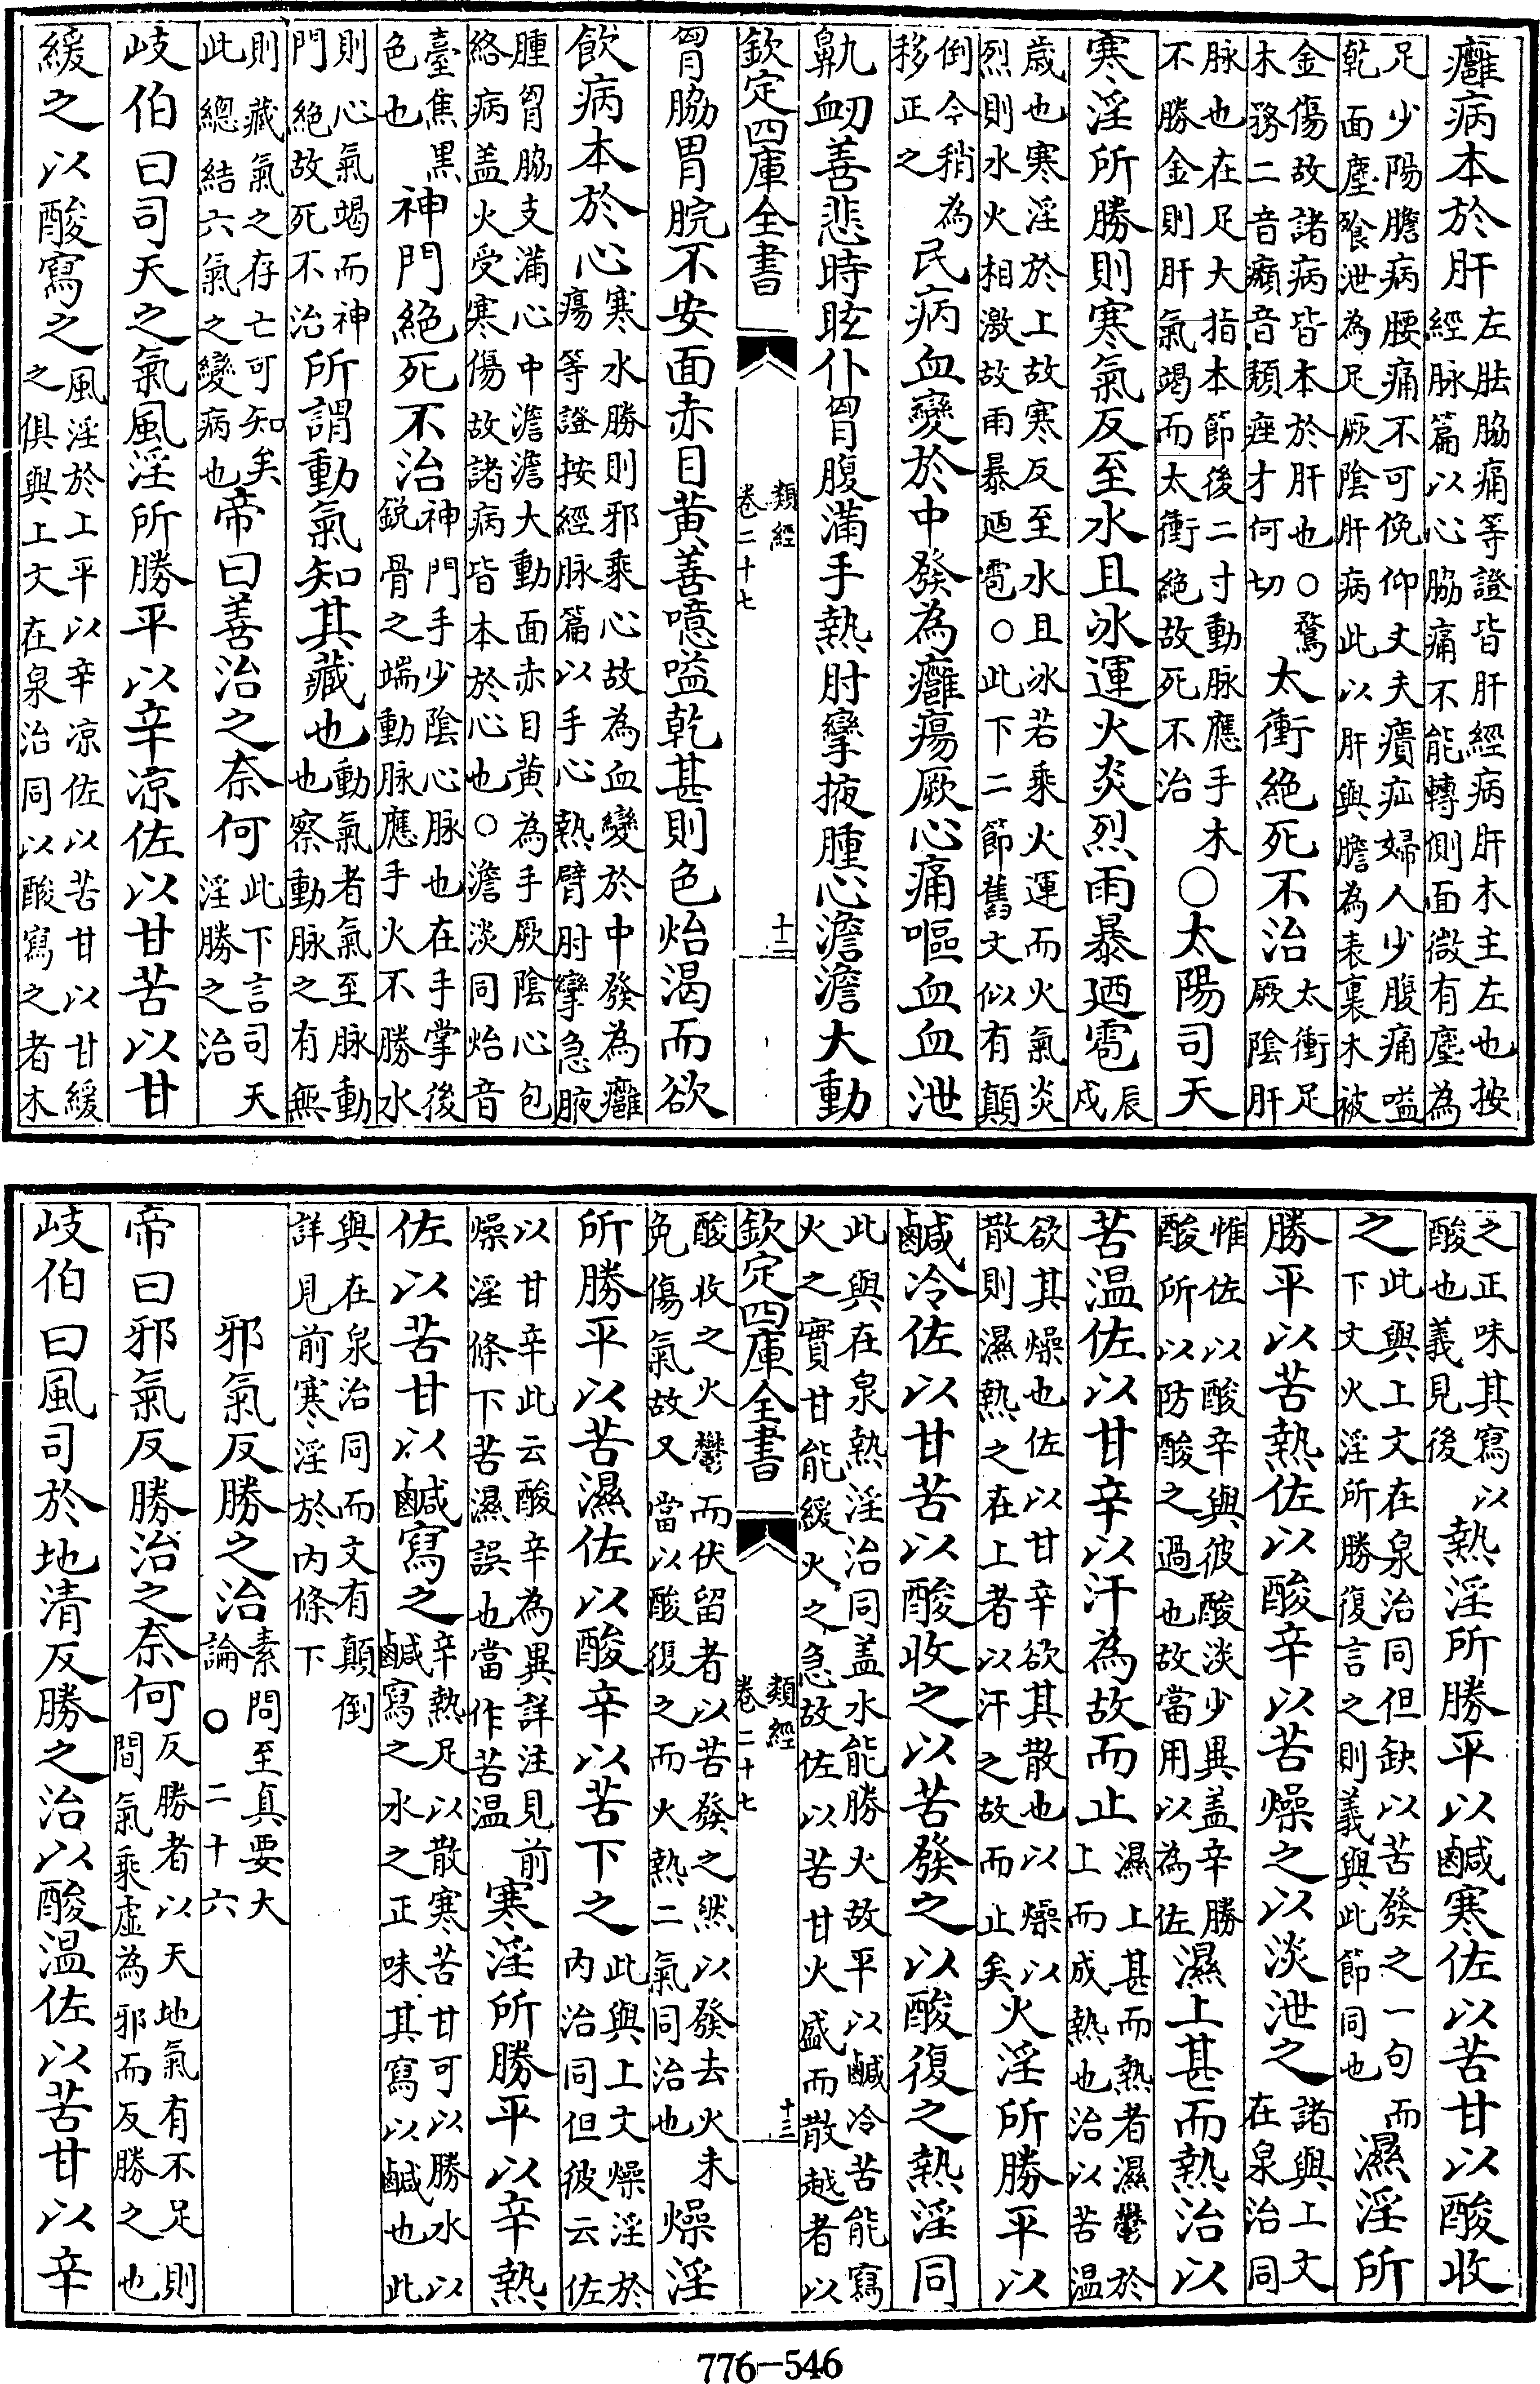 癰病本於肝左胠脇痛等證皆肝經病肝木主左也按經脉篇以心脇痛不能轉側面微有塵為
足少陽膽病腰痛不可俛仰丈夫㿉疝婦人少腹痛嗌乾面塵飱泄為足厥陰肝病此以肝與膽為表裏木被
金傷故諸病皆本於肝也○鶩木務二音癪音頽痤才何切太衝絶死不治太衝足厥陰肝
脉也在足大指本節後二寸動脉應手木不勝金則肝氣竭而太衝絶故死不治○太陽司天
寒淫所勝則寒氣反至水且冰運火炎烈雨暴廼雹辰戌
歲也寒淫於上故寒反至水且冰若乘火運而火氣炎烈則水火相激故雨暴廼雹○此下二節舊文似有顛
倒今稍為移正之民病血變於中發為癰瘍厥心痛嘔血血泄
鼽衂善悲時眩仆胷腹滿手熱肘攣掖腫心澹澹大動
欽定四庫全書
類經
卷二十七
十二
胷脇胃脘不安面赤目黄善噫嗌乾甚則色炲渴而欲
飲病本於心寒水勝則邪乘心故為血變於中發為癰瘍等證按經脉篇以手心熱臂肘攣急腋
腫胷脇支滿心中澹澹大動面赤目黄為手厥陰心包絡病盖火受寒傷故諸病皆本於心也○澹淡同炲音
臺焦黑色也神門絶死不治神門手少陰心脉也在手掌後鋭骨之端動脉應手火不勝水
則心氣竭而神門絶故死不治所謂動氣知其藏也動氣者氣至脉動也察動脉之有無
則藏氣之存亡可知矣此總結六氣之變病也帝曰善治之奈何此下言司天淫勝之治
岐伯曰司天之氣風淫所勝平以辛凉佐以甘苦以甘
緩之以酸寫之風淫於上平以辛凉佐以苦甘以甘緩之俱與上文在泉治同以酸寫之者木
之正味其寫以酸也義見後熱淫所勝平以鹹寒佐以苦甘以酸收
之此與上文在泉治同但缺以苦發之一句而下文火淫所勝復言之則義與此節同也濕淫所
勝平以苦熱佐以酸辛以苦燥之以淡泄之諸與上文在泉治同
惟佐以酸辛與彼酸淡少異盖辛勝酸所以防酸之過也故當用以為佐濕上甚而熱治以
苦温佐以甘辛以汗為故而止濕上甚而熱者濕鬱於上而成熱也治以苦温
欲其燥也佐以甘辛欲其散也以燥以散則濕熱之在上者以汗之故而止矣火淫所勝平以
鹹冷佐以甘苦以酸收之以苦發之以酸復之熱淫同
此與在泉熱淫治同盖水能勝火故平以鹹冷苦能寫火之實甘能緩火之急故佐以苦甘火盛而散越者以
欽定四庫全書
類經
卷二十七
十三
酸收之火鬱而伏留者以苦發之然以發去火未免傷氣故又當以酸復之而火熱二氣同治也燥淫
所勝平以苦濕佐以酸辛以苦下之此與上文燥淫於内治同但彼云佐
以甘辛此云酸辛為異詳注見前燥淫條下苦濕誤也當作苦温寒淫所勝平以辛熱
佐以苦甘以鹹寫之辛熱足以散寒苦甘可以勝水以鹹寫之水之正味其寫以鹹也此
與在泉治同而文有顛倒詳見前寒淫於内條下
邪氣反勝之治素問至真要大論○二十六
帝曰邪氣反勝治之奈何反勝者以天地氣有不足則間氣乘虛為邪而反勝之也
岐伯曰風司於地清反勝之治以酸温佐以苦甘以辛
776-546